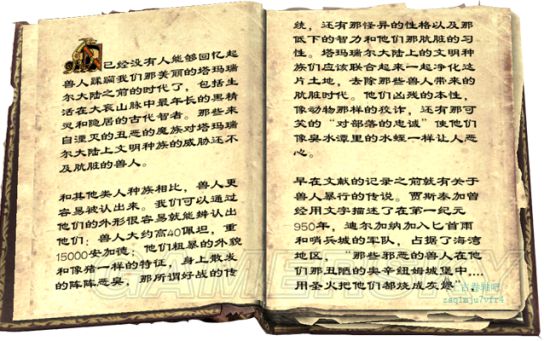 已经没有人能够回忆起
兽人蹂躏我们那美丽的塔玛瑞
尔大陆之前的时代了，包括生
活在大哀山脉中最年长的黑精
灵和隐居的古代智者。那些来
自湮灭的丑恶的魔族对塔玛瑞
尔大陆文明种族的威胁还不
及肮脏的兽人。
和其他类人种族相比，兽人更
容易被认出来。我们可以通过
他们的外形很容易就能辨认出
他们：兽人大约高40佩坦，重
15000安加德；他们粗暴的外貌
和像猪一样的特征，身上散发
的阵阵恶臭，那所谓好战的传
统，还有那怪异的性格以及那
低下的智力和他们那肮脏的习
性。塔玛瑞尔大陆上的文明种
族们应该联合起来一起净化这
片土地，去除那些兽人带来的
肮脏时代。他们凶残的本性，
像动物那样的狡诈，还有那可
笑的“对部落的忠诚”使他们
像臭水潭里的水蛭一样让人恶
心。
早在文献的记录之前就有关于
兽人暴行的传说。贾斯泰加曾
经用文字描述了在第一纪元
950年，迪尔加纳加入匕首雨
和哨兵城的军队，占据了海湾
地区，“那些邪恶的兽人在他
们那丑陋的奥辛纽姆城堡中....
用圣火把他们都烧成灰烬”，
上古卷轴吧
zaq1mju7vfr4